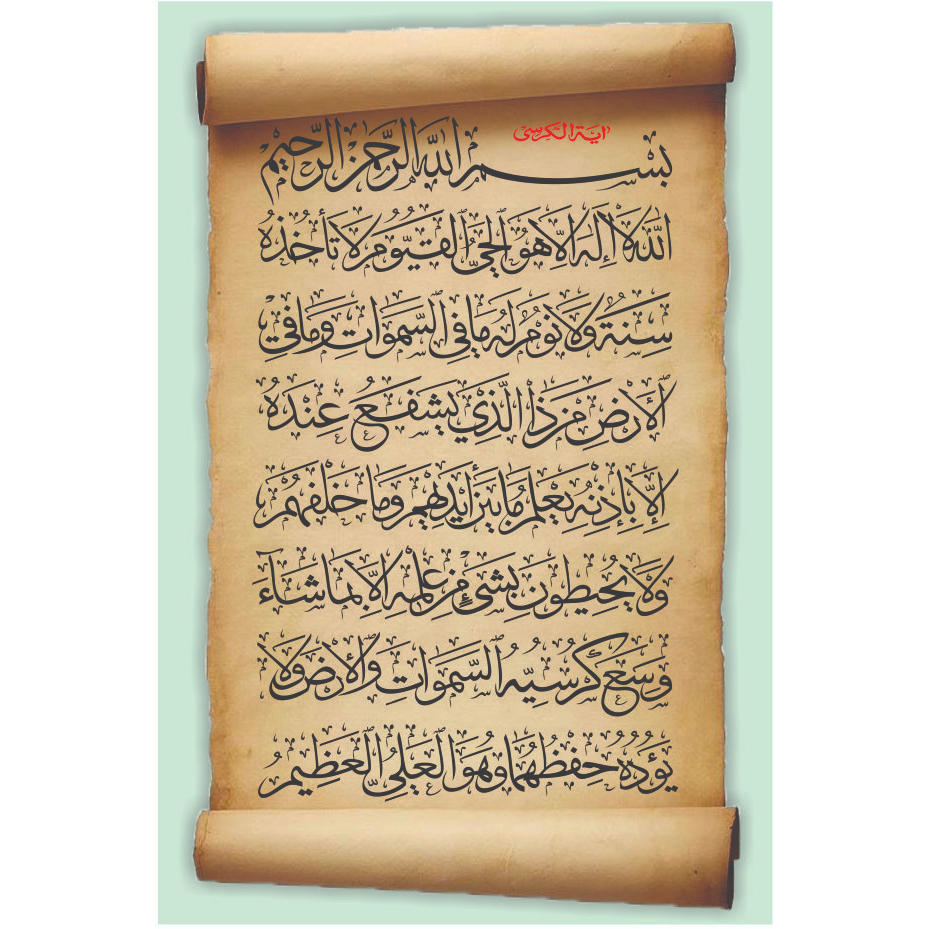 اية الكرسى
بسم الله الرحمن الرحيم
الله لا إله الا هو الحي القيوم لا تأخذه
سنة ولا نوم له ما في السموات وما في
الأرض من ذا الذي يشفع عنده
إلا بإذنه يعلم ما بين أيديهم وما خلفهم
ولا يحيطون بشيء من علمه الا بما شاء
وسع كرسيه السموات والأرض ولا
يؤده حفظهما وهو العلي العظيم